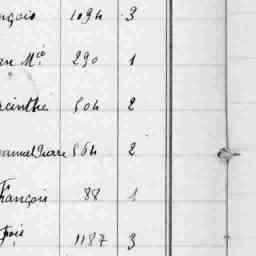 nçois 1094 3
an M.ce 290 1
acinthe 504 2
manuel Pierre 564 2
François 88 1
çois 1187 3